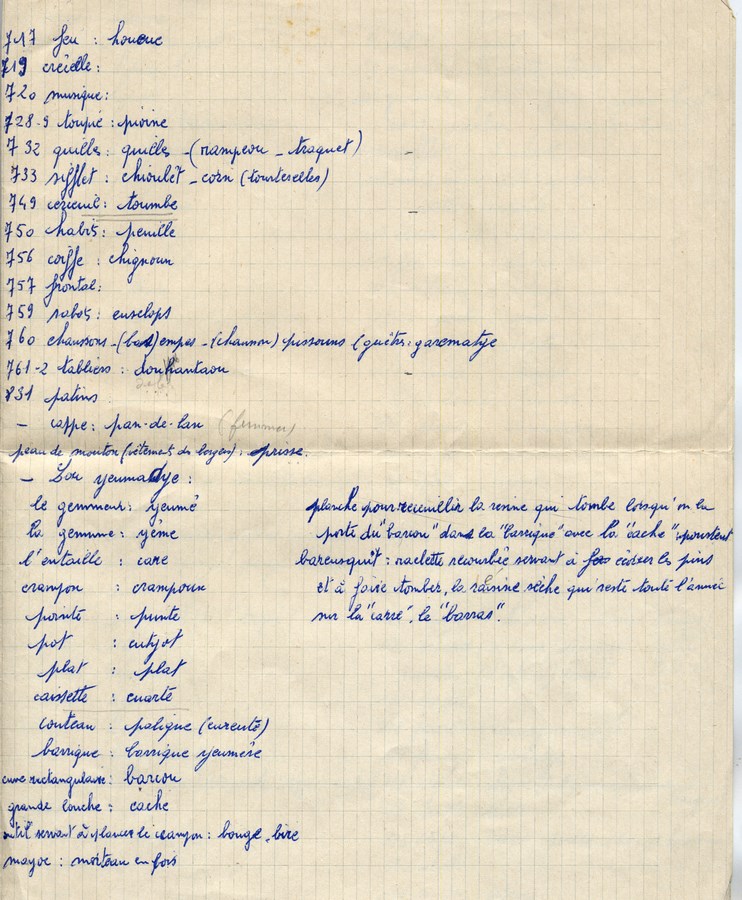 717 feu : houeuc
719 crécelle :
720 musique :
728-9 toupie : pivine
732 quilles : quilles - (rampeou - traquet)
733 sifflet : chioulèt - corn (tourterelles)
749 : toumbe
750 habit : peuille
756 coiffe : chignoun
757 frontal :
759 sabot : esuclops
760 chaussons - (bas) empes - (chausson) pissouns (guêtre : garamatje
761-2 tabliers :
831 patins
- cappe : pan-de-lan (femmes)
peau de mouton (vêtement des bergers) : prisse.
- Lou yeumadje :
le gemmeur : yeumé
la gemme : yème
l'entaille : care
crampon : crampoun
pointe : punte
pot : cutjot
plat : plat
caissette : cuarté
couteau : paligue (cureuté)
barrique : barrique yeumère
cuve rectangulaire : barcou
grande louche : cache
outil servant à placer le crampon : bouge-bire
mayoc : morceau en fois
planche pour recueuillir la résine qui tombe lorsqu'on la
porte du "barcou" dans la "barrique" avec la "cache" :
barrusquit : raclette recourbée servant à les pins
et à faire tomber, la résine sèche qui reste toute l'année
sur la "carre", le "barras".